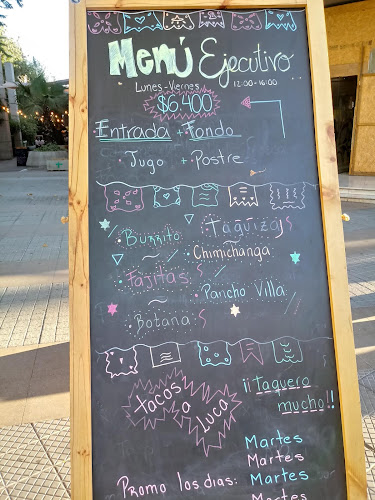 Menú Ejecutivo
Lunes-Viernes 12:00-16:00
$6.400
Entrada + Fondo
Jugo + Postre
Burrito Taquizas
Chimichanga
Fajitas
Pancho Villa
Botanas
Tacos a Luca
¡¡taquero mucho!!
Martes
Martes
Promo los días: Martes
Martes